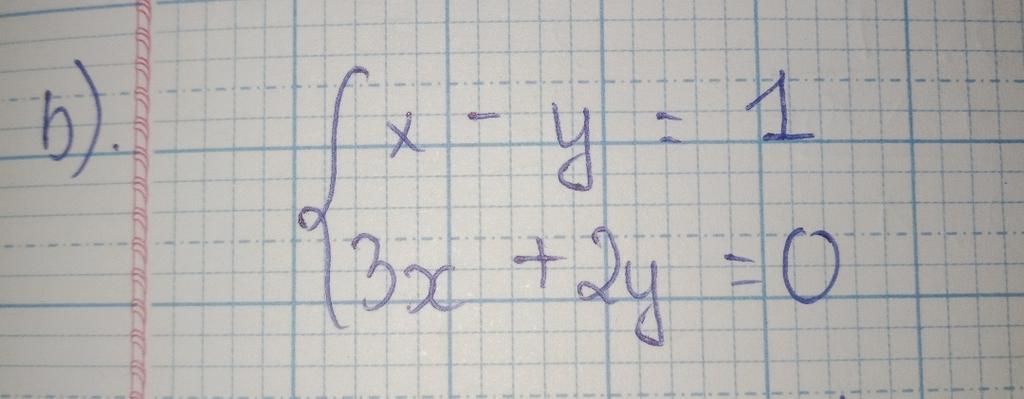 b). { x - y = 1
3x + 2y = 0